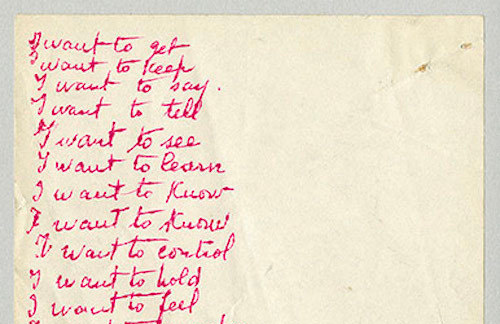 I want to get
I want to keep
I want to say.
I want to tell
I want to see
I want to learn
I want to Know
I want to Know
I want to control
I want to hold
I want to feel